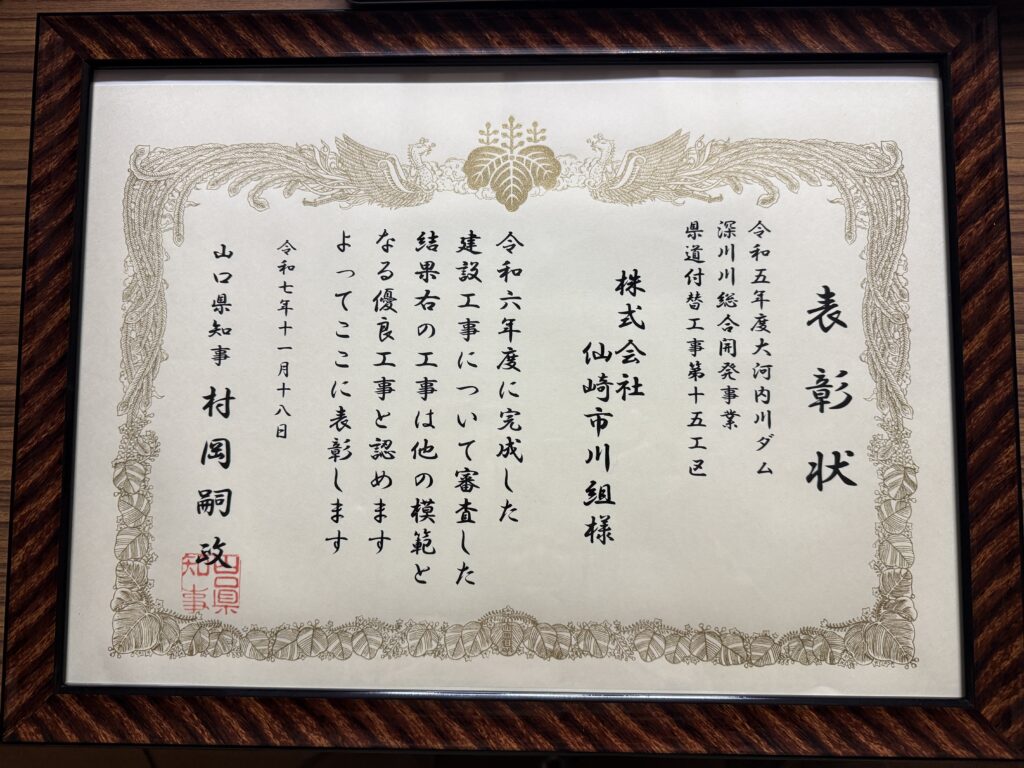 表彰状
令和五年度大河内川ダム
深川川総合開発事業
県道付替工事第十五工区
株式会社
仙崎市川組様
令和六年度に完成した
建設工事について審査した
結果右の工事は他の模範と
なる優良工事と認めます
よってここに表彰します
令和七年十一月十八日
山口県知事 村岡嗣政
山口県
知事